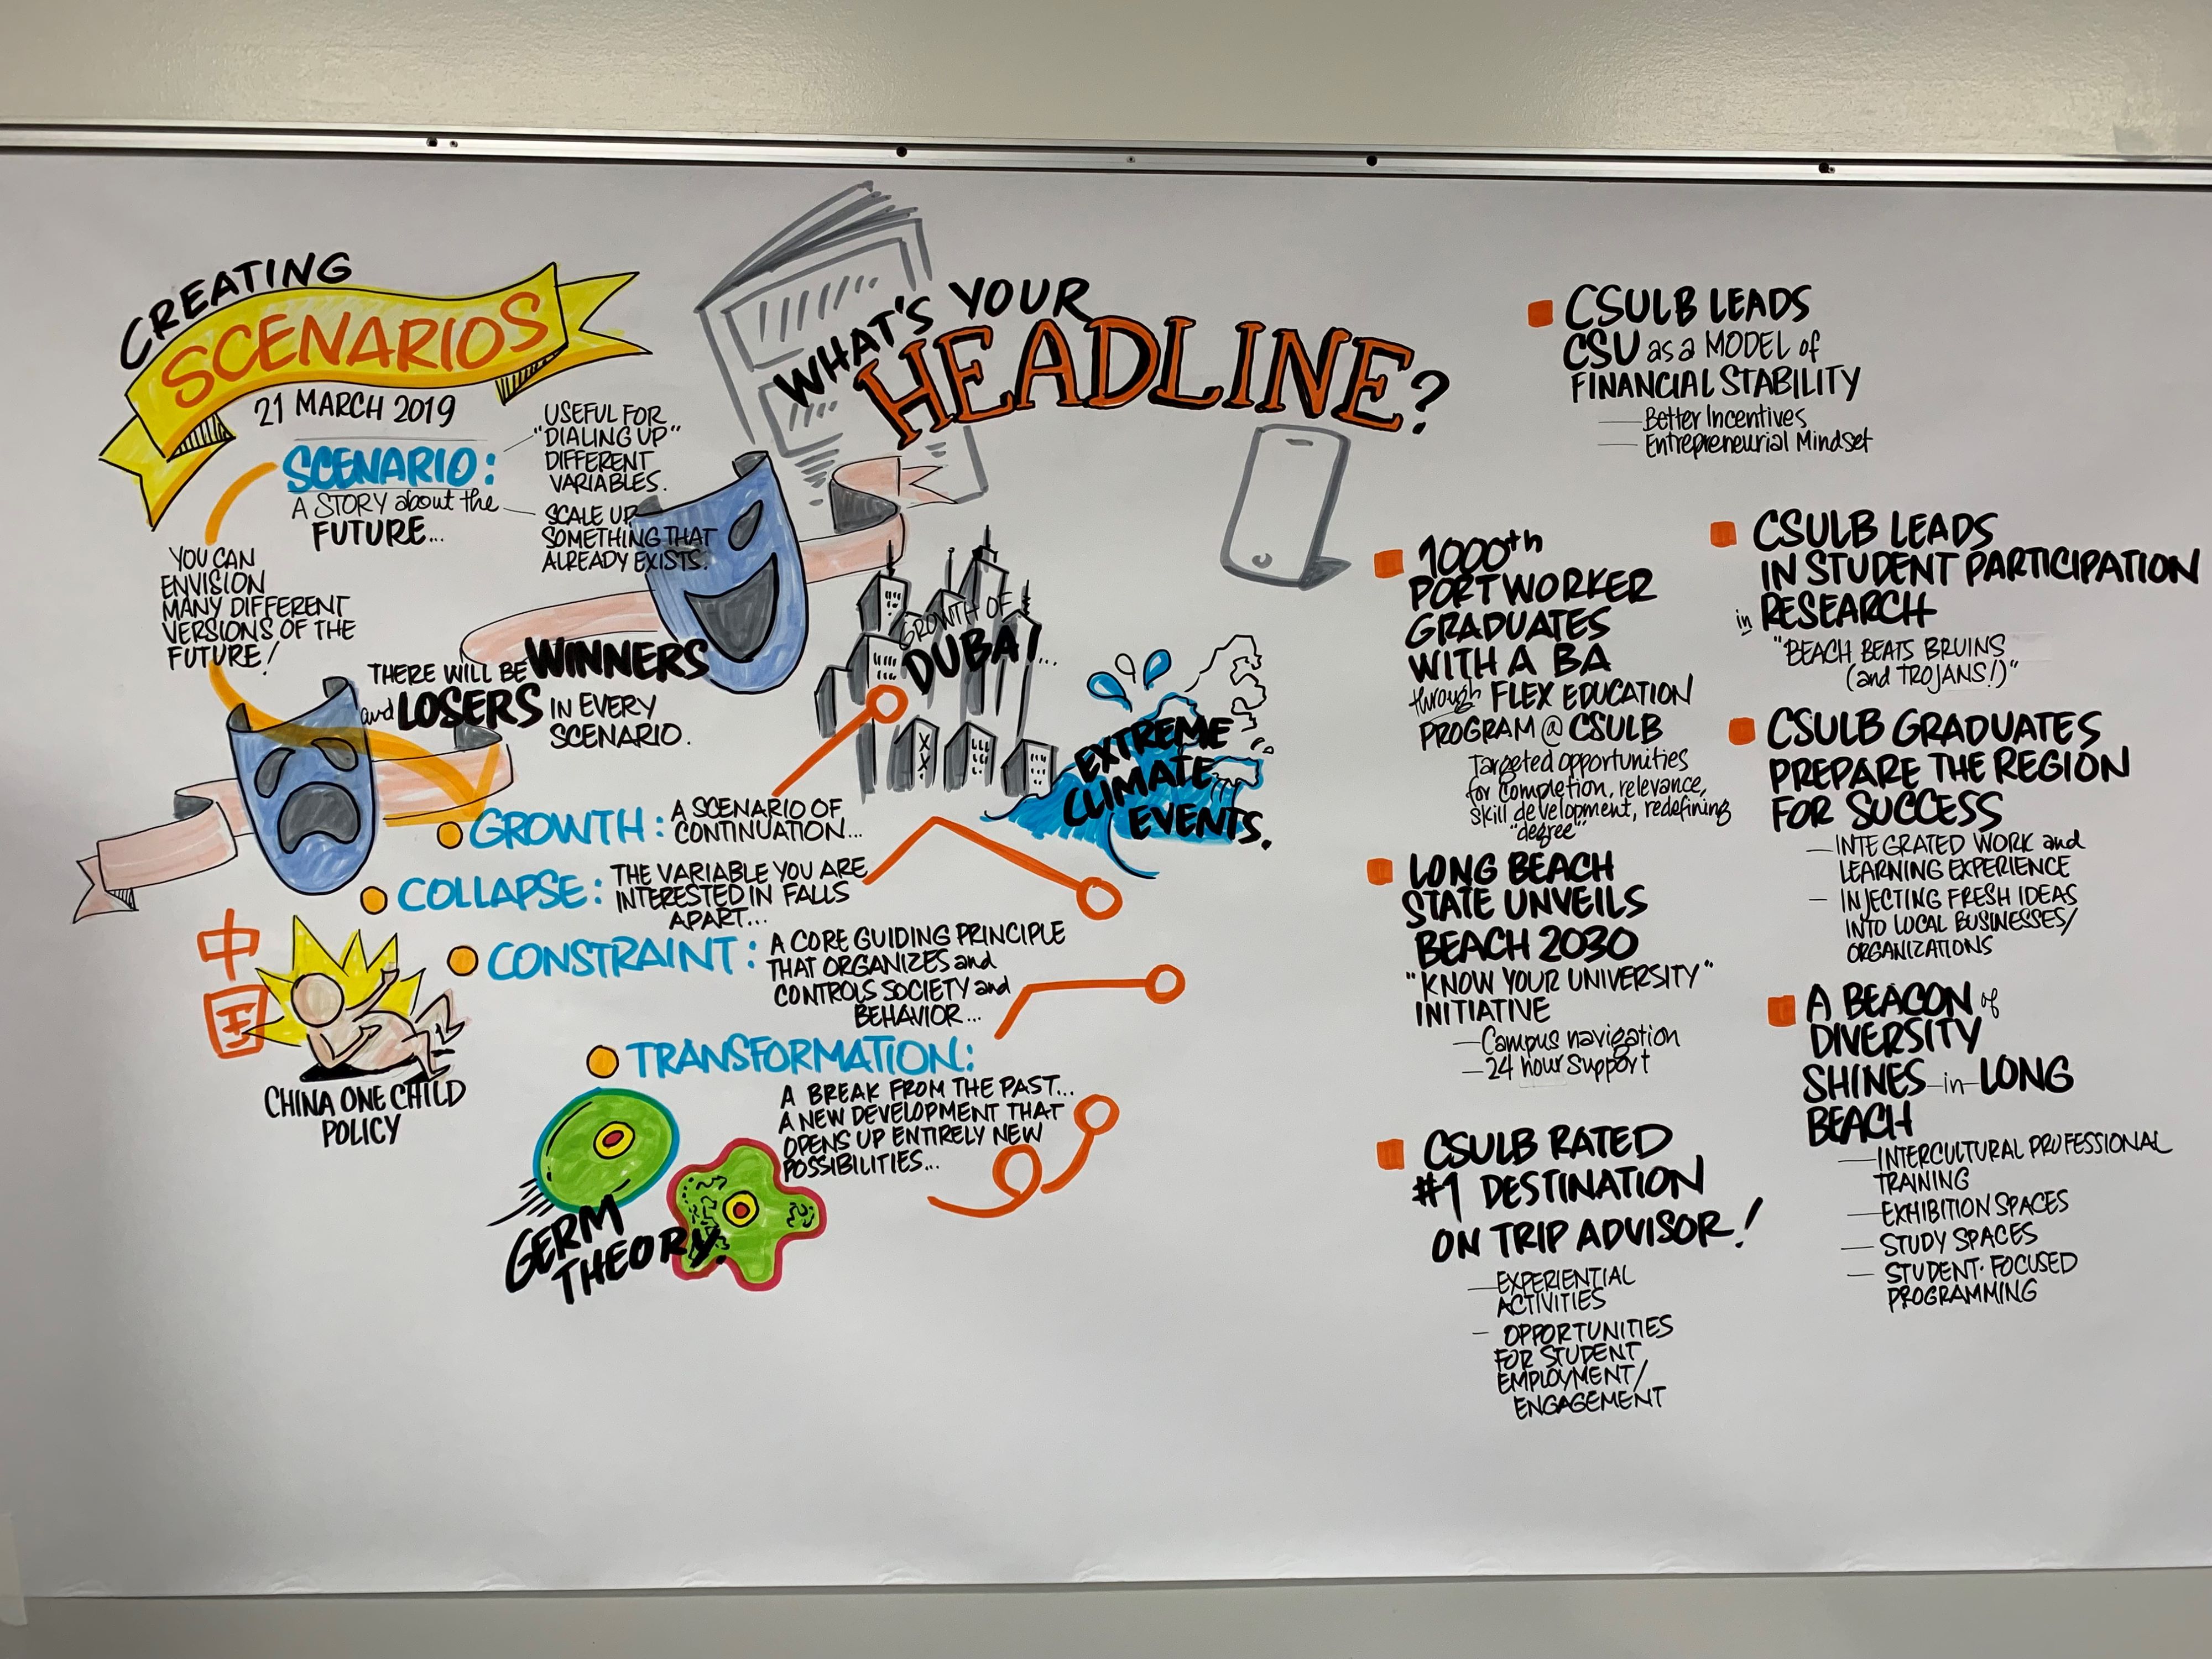 CREATING
SCENARIOS
21 MARCH 2019
SCENARIO:
A STORY about the
FUTURE...
USEFUL FOR
"DIALING UP"
DIFFERENT
VARIABLES.
SCALE UP
SOMETHING THAT
ALREADY EXISTS.
YOU CAN
ENVISION
MANY DIFFERENT
VERSIONS OF THE
FUTURE!
THERE WILL BE WINNERS
and LOSERS IN EVERY
SCENARIO.
GROWTH: A SCENARIO OF
CONTINUATION...
GROWTH OF
DUBAI...
COLLAPSE: THE VARIABLE YOU ARE
INTERESTED IN FALLS
APART...
EXTREME
CLIMATE
EVENTS.
CONSTRAINT: A CORE GUIDING PRINCIPLE
THAT ORGANIZES and
CONTROLS SOCIETY and
BEHAVIOR...
中
国
CHINA ONE CHILD
POLICY
TRANSFORMATION:
A BREAK FROM THE PAST...
A NEW DEVELOPMENT THAT
OPENS UP ENTIRELY NEW
POSSIBILITIES...
GERM
THEORY.
WHAT'S YOUR
HEADLINE?
CSULB LEADS
CSU as a MODEL of
FINANCIAL STABILITY
— Better Incentives
— Entrepreneurial Mindset
1000th
PORT WORKER
GRADUATES
WITH A BA
through FLEX EDUCATION
PROGRAM @ CSULB
Targeted opportunities
for completion, relevance,
skill development, redefining
"degree"
LONG BEACH
STATE UNVEILS
BEACH 2030
"KNOW YOUR UNIVERSITY"
INITIATIVE
— Campus navigation
— 24 hour support
CSULB RATED
#1 DESTINATION
ON TRIP ADVISOR!
— EXPERIENTIAL
ACTIVITIES
- OPPORTUNITIES
FOR STUDENT
EMPLOYMENT/
ENGAGEMENT
CSULB LEADS
IN STUDENT PARTICIPATION
in RESEARCH
"BEACH BEATS BRUINS
(and TROJANS!)"
CSULB GRADUATES
PREPARE THE REGION
FOR SUCCESS
— INTEGRATED WORK and
LEARNING EXPERIENCE
- INJECTING FRESH IDEAS
INTO LOCAL BUSINESSES/
ORGANIZATIONS
A BEACON of
DIVERSITY
SHINES in LONG
BEACH
— INTERCULTURAL PROFESSIONAL
TRAINING
— EXHIBITION SPACES
— STUDY SPACES
— STUDENT-FOCUSED
PROGRAMMING